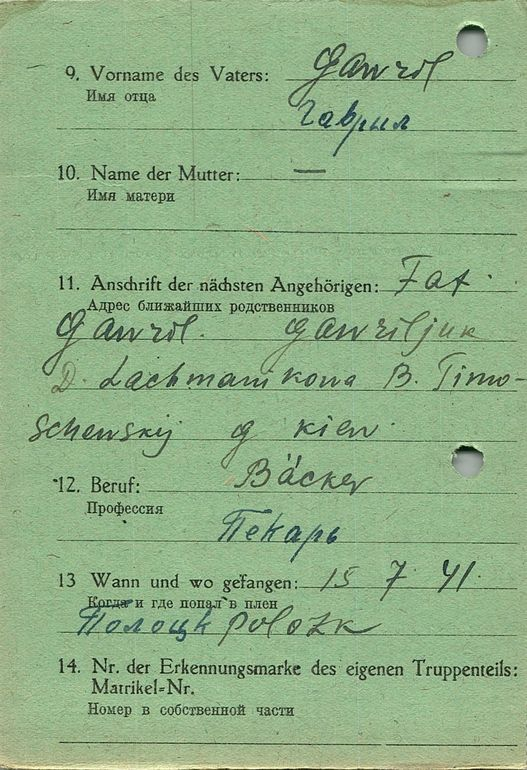 9. Vorname des Vaters: Gawril
Имя отца
Гаврил
10. Name der Mutter: —
Имя матери
11. Anschrift der nächsten Angehörigen: Fat.
Адрес ближайших родственников
Gawril. Gawriljuk
D. Lachmanikowa B. Timo-
schenskij G Kiew.
12. Beruf: Bäcker
Профессия
Пекарь
13 Wann und wo gefangen: 15 7 41.
Когда и где попал в плен
Полоцк Polozk
14. Nr. der Erkennungsmarke des eigenen Truppenteils:
Matrikel-Nr.
Номер в собственной части